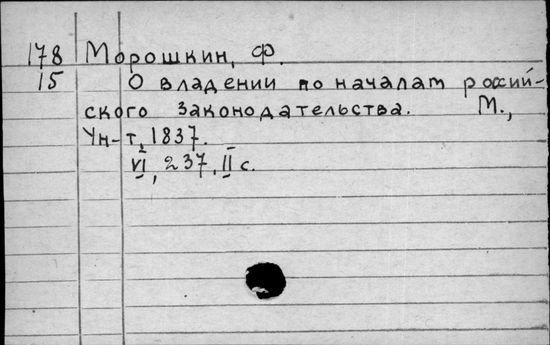 178 Морошкин, Ф.
15 О владении по началам россий-
ского законодательства. М.,
Ун-т, 1837.
VI, 237, II с.